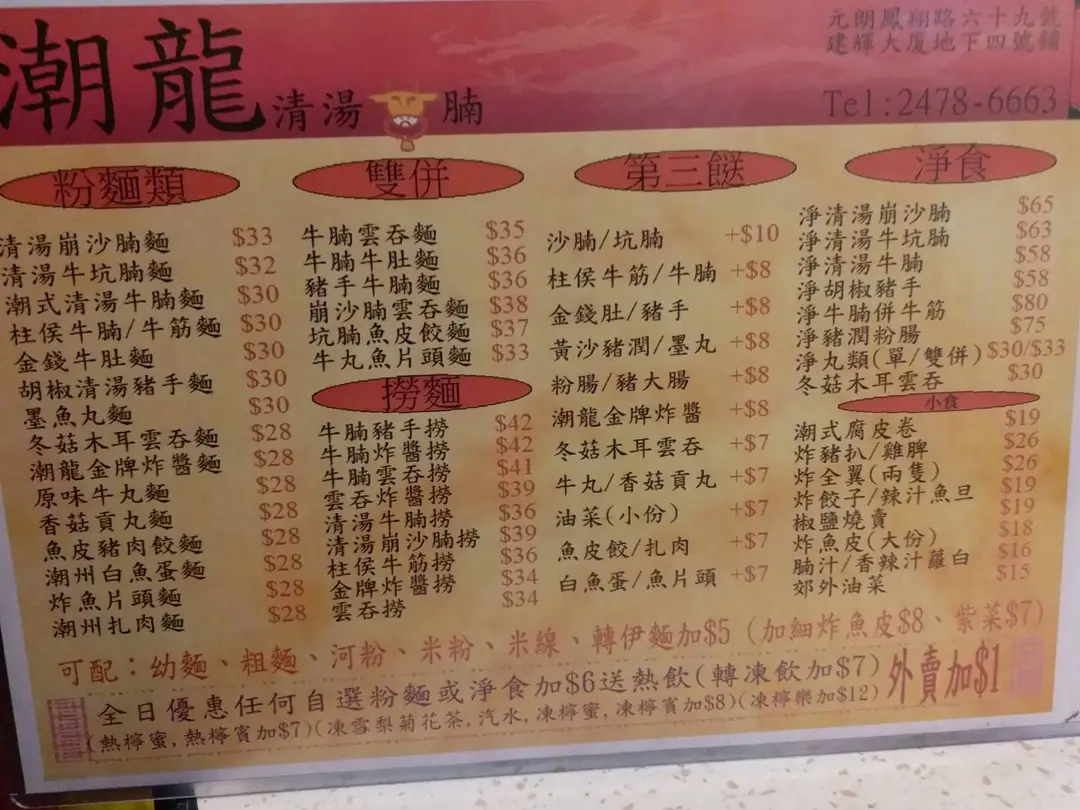 潮龍清湯腩
元朗鳳翔路六十九號
建輝大厦地下四號鋪
Tel:2478-6663
粉麵類
清湯崩沙腩麵 $33
清湯牛坑腩麵 $32
潮式清湯牛腩麵 $30
柱侯牛腩/牛筋麵 $30
金錢牛肚麵 $30
胡椒清湯豬手麵 $30
墨魚丸麵 $30
冬菇木耳雲吞麵 $28
潮龍金牌炸醬麵 $28
原味牛丸麵 $28
香菇貢丸麵 $28
魚皮豬肉餃麵 $28
潮州白魚蛋麵 $28
炸魚片頭麵 $28
潮州扎肉麵 $28
雙併
牛腩雲吞麵 $35
牛腩牛肚麵 $36
豬手牛腩麵 $36
崩沙腩雲吞麵 $38
坑腩魚皮餃麵 $37
牛丸魚片頭麵 $33
撈麵
牛腩豬手撈 $42
牛腩炸醬撈 $42
牛腩雲吞撈 $41
雲吞炸醬撈 $39
清湯牛腩撈 $36
清湯崩沙腩撈 $39
柱侯牛筋撈 $36
金牌炸醬撈 $34
雲吞撈 $34
第三餸
沙腩/坑腩 +$10
柱侯牛筋/牛腩 +$8
金錢肚/豬手 +$8
黃沙豬潤/墨丸 +$8
粉腸/豬大腸 +$8
潮龍金牌炸醬 +$8
冬菇木耳雲吞 +$7
牛丸/香菇貢丸 +$7
油菜(小份) +$7
魚皮餃/扎肉 +$7
白魚蛋/魚片頭 +$7
淨食
淨清湯崩沙腩 $65
淨清湯牛坑腩 $63
淨清湯牛腩 $58
淨胡椒豬手 $58
淨牛腩併牛筋 $80
淨豬潤粉腸 $75
淨丸類(單/雙併) $30/$33
冬菇木耳雲吞 $30
小食
潮式腐皮卷 $19
炸豬扒/雞脾 $26
炸全翼(兩隻) $26
炸餃子/辣汁魚旦 $19
椒鹽燒賣 $19
炸魚皮(大份) $18
腩汁/香辣汁蘿白 $16
郊外油菜 $15
可配：幼麵、粗麵、河粉、米粉、米線、轉伊麵加$5 (加細炸魚皮$8、紫菜$7)
全日優惠任何自選粉麵或淨食加$6送熱飲(轉凍飲加$7) 外賣加$1
(熱檸蜜,熱檸賓加$7)(凍雪梨菊花茶,汽水,凍檸蜜,凍檸賓加$8)(凍檸樂加$12)